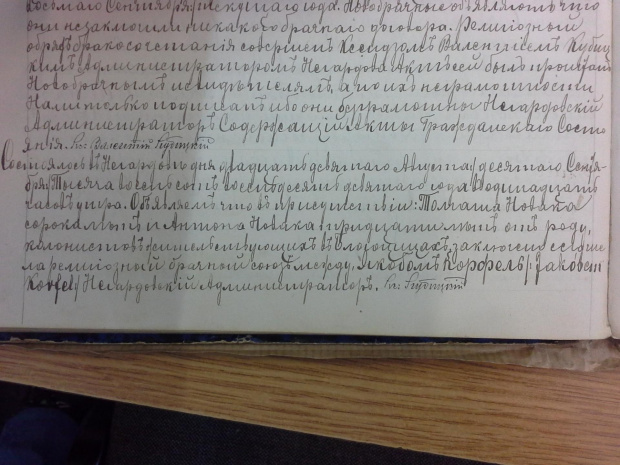 восьмаго Сентября текущаго года. Новобрачные объявляютъ что
они незаключили никакого брачнаго договора. Религіозный
обрядъ бракосочетанія совершенъ Ксендзомъ Валентіемъ Кубиц
кимъ Администраторомъ Негардова Актъ сей былъ прочитанъ
Новобрачнымъ и свидѣтелямъ, а по ихъ неграмотности
Нами только подписанъ ибо они безграмотны Негардовскій
Администраторъ Содержащій Акты Гражданскаго Состо
янія. Кс: Валентій Кубицкій
Состоялось въ Негардовѣ дня двадцать девятаго Августа/десятаго Сентя-
бря/Тысяча восемь сотъ восемьдесятъ девятаго года въ одинадцать
часовъ утра. Объявляемъ что въ присутствіи: Томаша Новака
сорока лѣтъ и Антона Новака тридцати лѣтъ отъ роду,
колонистовъ жительствующихъ въ заключенъ сего чис
ла религіозный брачный союзъ между, Якобомъ Корфель/: Jakobem
Korfel/ Негардовскій Администраторъ. Кс: Кубицкій